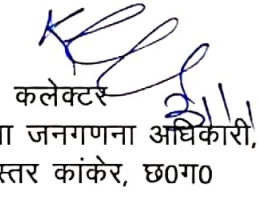 कलेक्टर
जनगणना अधिकारी,
स्तर कांकेर, छ0ग0